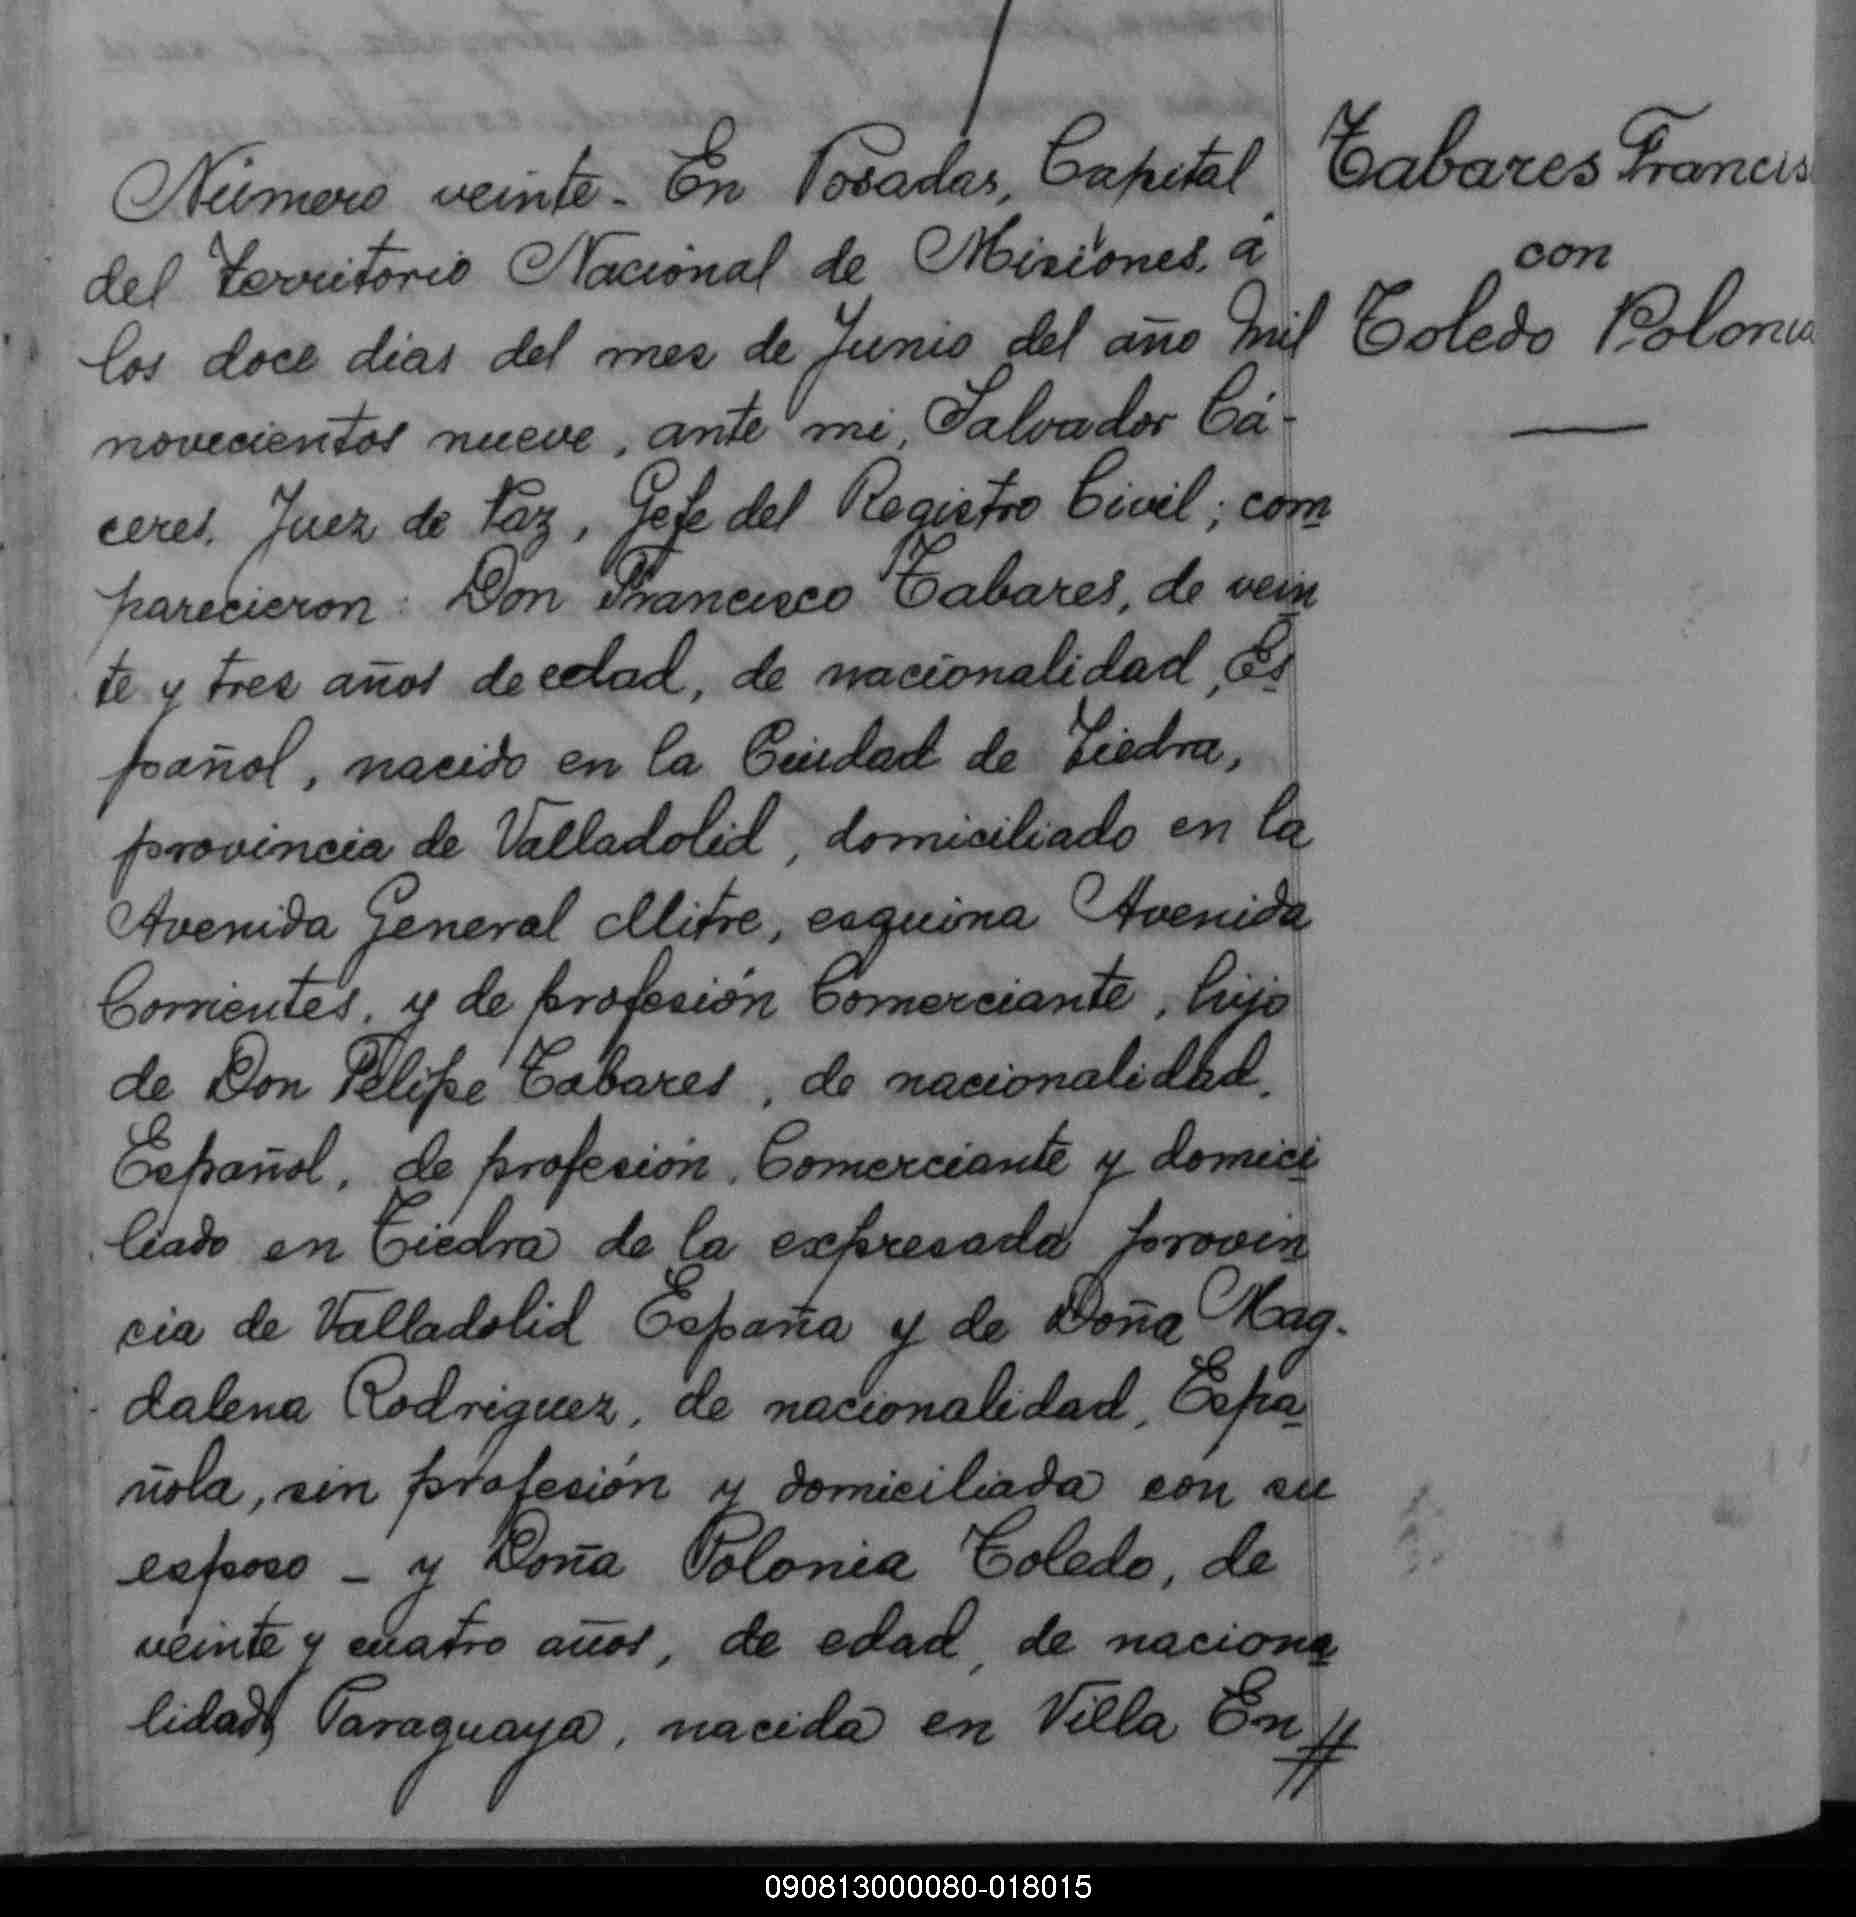 Número veinte - En Posadas, Capital
del Territorio Nacional de Misiones, á
los doce dias del mes de Junio del año mil
novecientos nueve, ante mi, Salvador Cá-
ceres, Juez de Paz, Gefe del Registro Civil; com
parecieron: Don Francisco Tabares, de vein
te y tres años de edad, de nacionalidad, Es
pañol, nacido en la Ciudad de Tiedra,
provincia de Valladolid, domiciliado en la
Avenida General Mitre, esquina Avenida
Corrientes, y de profesión Comerciante, hijo
de Don Felipe Tabares, de nacionalidad,
Español, de profesión, Comerciante y domici
liado en Tiedra de la expresada provin
cia de Valladolid España y de Doña Mag-
dalena Rodriguez, de nacionalidad, Espa
ñola, sin profesión y domiciliada con su
esposo - y Doña Polonia Toledo, de
veinte y cuatro años, de edad, de naciona
lidad, Paraguaya, nacida en Villa En//
Tabares Francis
con
Toledo Polonia
090813000080-018015